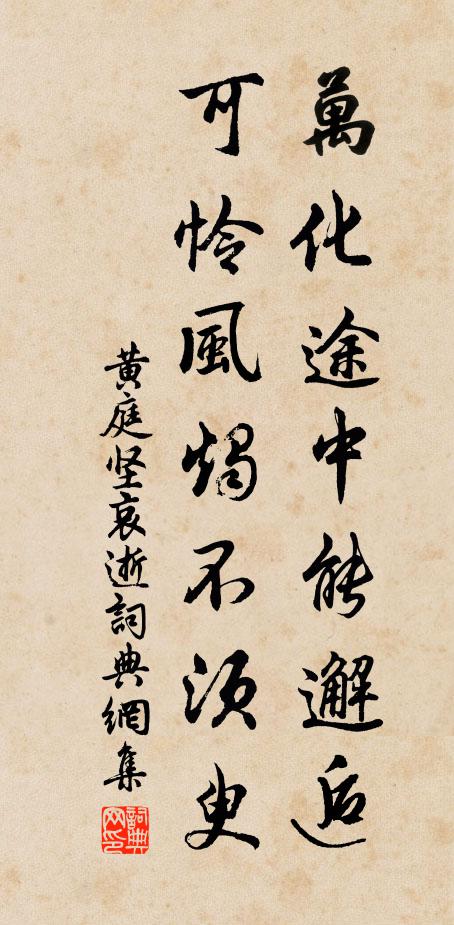 萬化途中能邂逅
可憐風燭不須臾
黃庭坚哀逝詞典網集
詞典网印